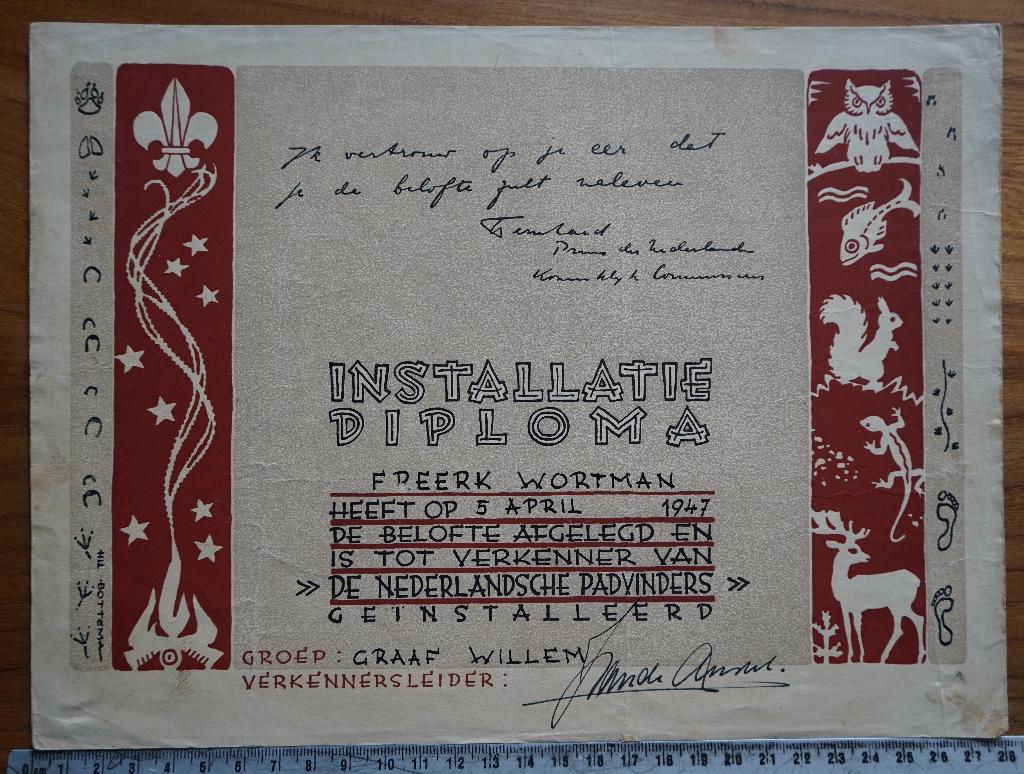 Ik vertrouw op je eer dat
je de belofte zult naleven
Bernhard
Prins der Nederlanden
Koninklijk Commissaris
INSTALLATIE
DIPLOMA
FREERK WORTMAN
HEEFT OP 5 APRIL 1947
DE BELOFTE AFGELEGD EN
IS TOT VERKENNER VAN
» DE NEDERLANDSCHE PADVINDERS »
GEINSTALLEERD
GROEP: GRAAF WILLEM
VERKENNERSLEIDER:
HIL BOTTEMA
0 cm 1 2 3 4 5 6 7 8 9 10 11 12 13 14 15 16 17 18 19 20 21 22 23 24 25 26 27 28